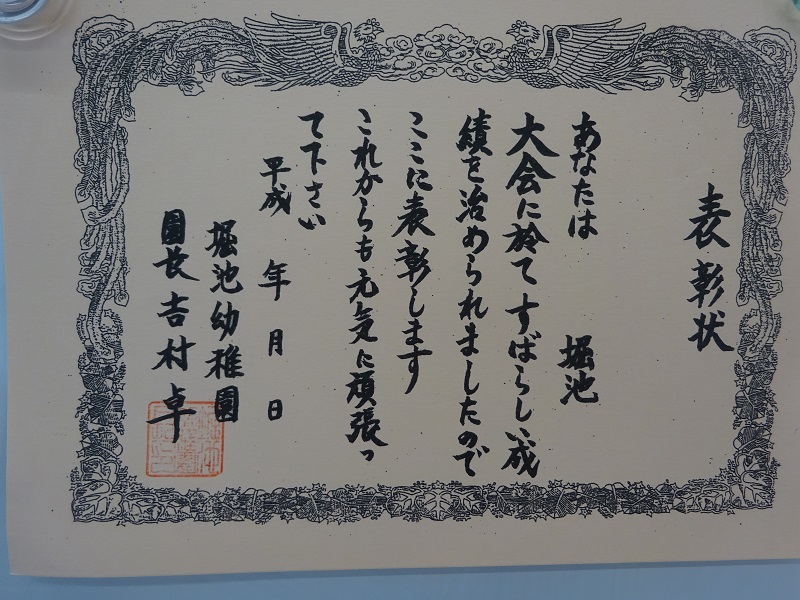 表彰状
あなたは 堀池
大会に於てすばらしい成
績を治められましたので
ここに表彰します
これからも元気に頑張っ
て下さい
平成 年 月 日
堀池幼稚園
園長 吉村卓